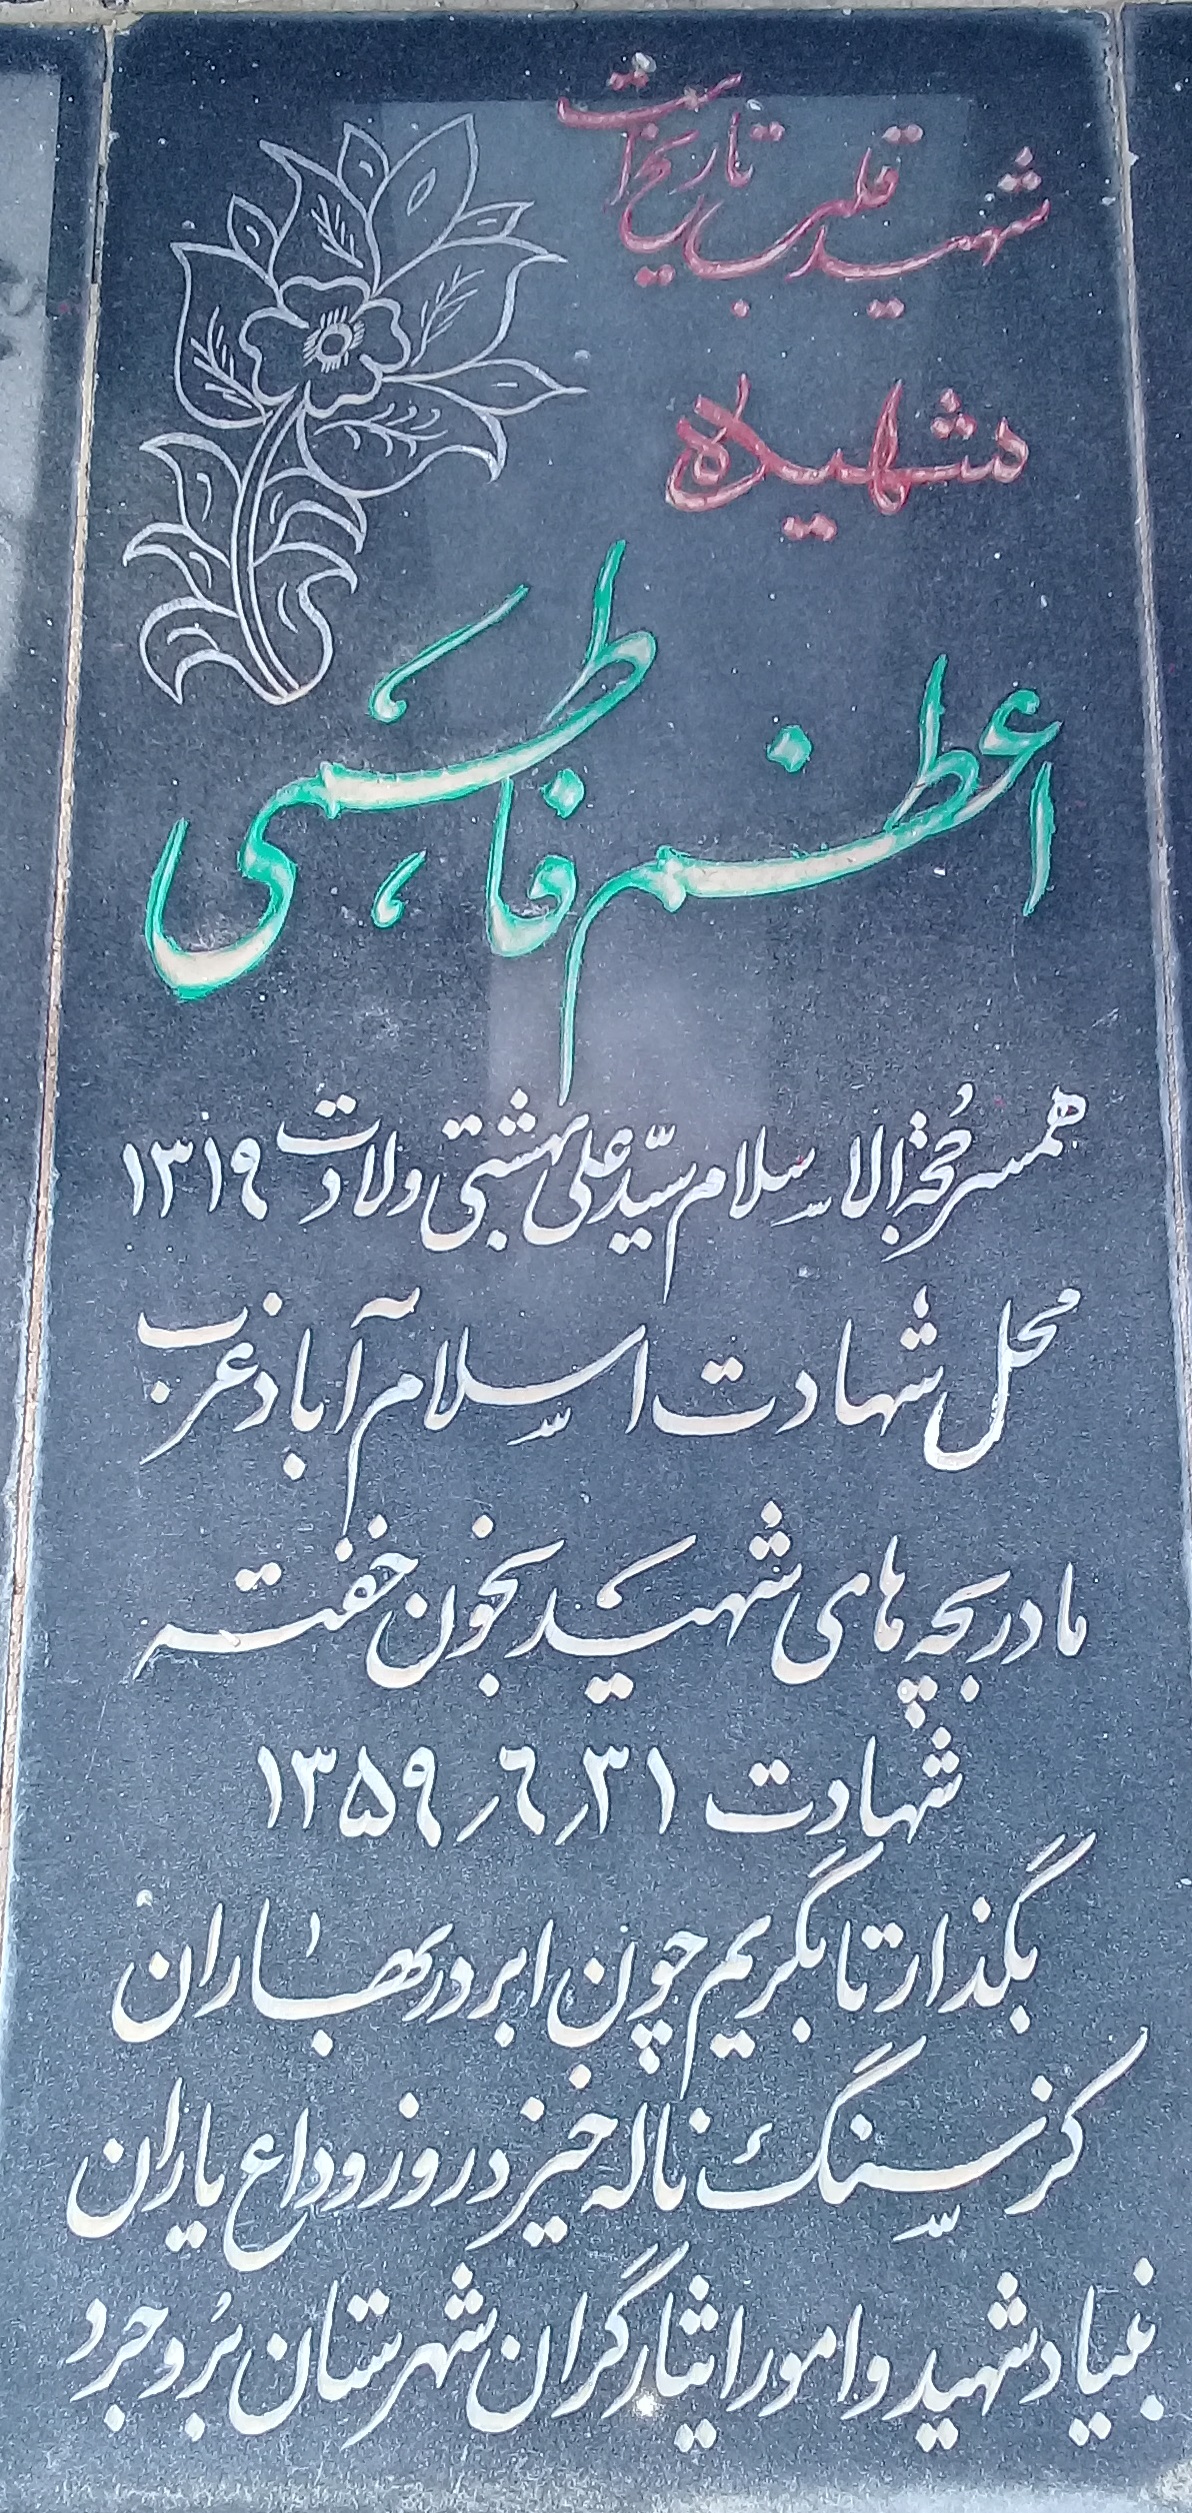 شهید قلب تاریخ است
شهیده
اعظم فاطمی
همسر حُجة الاسلام سیّد علی بهشتی ولادت ۱۳۱۹
محل شهادت اسلام آباد غرب
مادر بچه های شهید بخون خفته
شهادت ۳۱ر۶ر۱۳۵۹
بگذار تا بگریم چون ابر در بهاران
کز سنگ ناله خیزد روز وداع یاران
بنیاد شهید و امور ایثارگران شهرستان بُروجرد